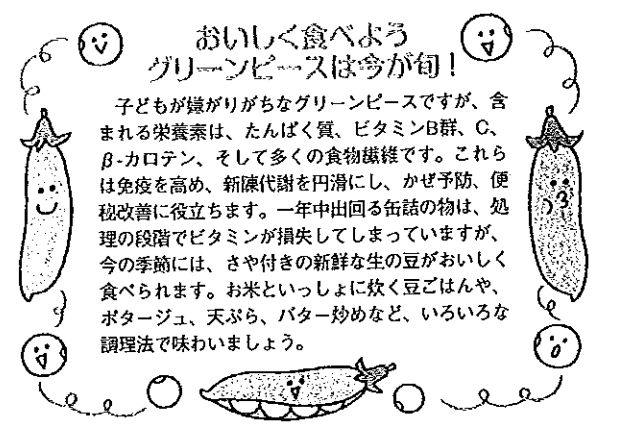 おいしく食べよう
グリーンピースは今が旬！
子どもが嫌がりがちなグリーンピースですが、含
まれる栄養素は、たんぱく質、ビタミンB群、C、
β-カロテン、そして多くの食物繊維です。これら
は免疫を高め、新陳代謝を円滑にし、かぜ予防、便
秘改善に役立ちます。一年中出回る缶詰の物は、処
理の段階でビタミンが損失してしまっていますが、
今の季節には、さや付きの新鮮な生の豆がおいしく
食べられます。お米といっしょに炊く豆ごはんや、
ポタージュ、天ぷら、バター炒めなど、いろいろな
調理法で味わいましょう。